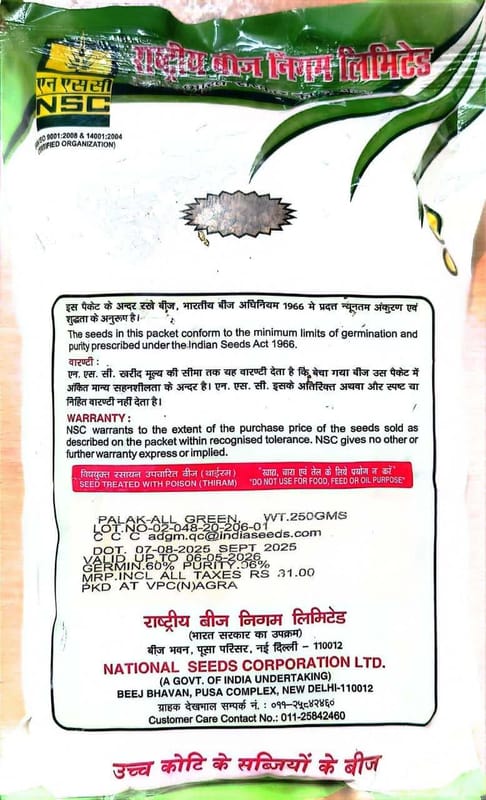 एन एस सी
NSC
राष्ट्रीय बीज निगम लिमिटेड
ISO 9001:2008 & 14001:2004
CERTIFIED ORGANIZATION)
इस पैकेट के अन्दर रखे बीज, भारतीय बीज अधिनियम 1966 मे प्रदत्त न्यूनतम अंकुरण एवं
शुद्धता के अनुरूप है।
The seeds in this packet conform to the minimum limits of germination and
purity prescribed under the Indian Seeds Act 1966.
वारण्टी :
एन. एस. सी. खरीद मूल्य की सीमा तक यह वारण्टी देता है कि बेचा गया बीज उस पैकेट में
अंकित मान्य सहनशीलता के अन्दर है। एन. एस. सी. इसके अतिरिक्त अथवा और स्पष्ट या
निहित वारण्टी नहीं देता है।
WARRANTY :
NSC warrants to the extent of the purchase price of the seeds sold as
described on the packet within recognised tolerance. NSC gives no other or
further warranty express or implied.
विषयुक्त रसायन उपचारित बीज (थाईरम) "खाद्य, चारा एवं तेल के लिये प्रयोग न करें"
SEED TREATED WITH POISON (THIRAM) "DO NOT USE FOR FOOD, FEED OR OIL PURPOSE"
PALAK-ALL GREEN, WT.250GMS
LOT.NO-02-048-20-206-01
C C C adgm.qc@indiaseeds.com
DOT. 07-08-2025 SEPT 2025
VALID UP TO 06-05-2026
GERMIN.60% PURITY.96%
MRP.INCL ALL TAXES RS 31.00
PKD AT VPC(N)AGRA
राष्ट्रीय बीज निगम लिमिटेड
(भारत सरकार का उपक्रम)
बीज भवन, पूसा परिसर, नई दिल्ली - 110012
NATIONAL SEEDS CORPORATION LTD.
(A GOVT. OF INDIA UNDERTAKING)
BEEJ BHAVAN, PUSA COMPLEX, NEW DELHI-110012
ग्राहक देखभाल सम्पर्क नं. : ०११-२५८४२४६०
Customer Care Contact No.: 011-25842460
उच्च कोटि के सब्जियों के बीज